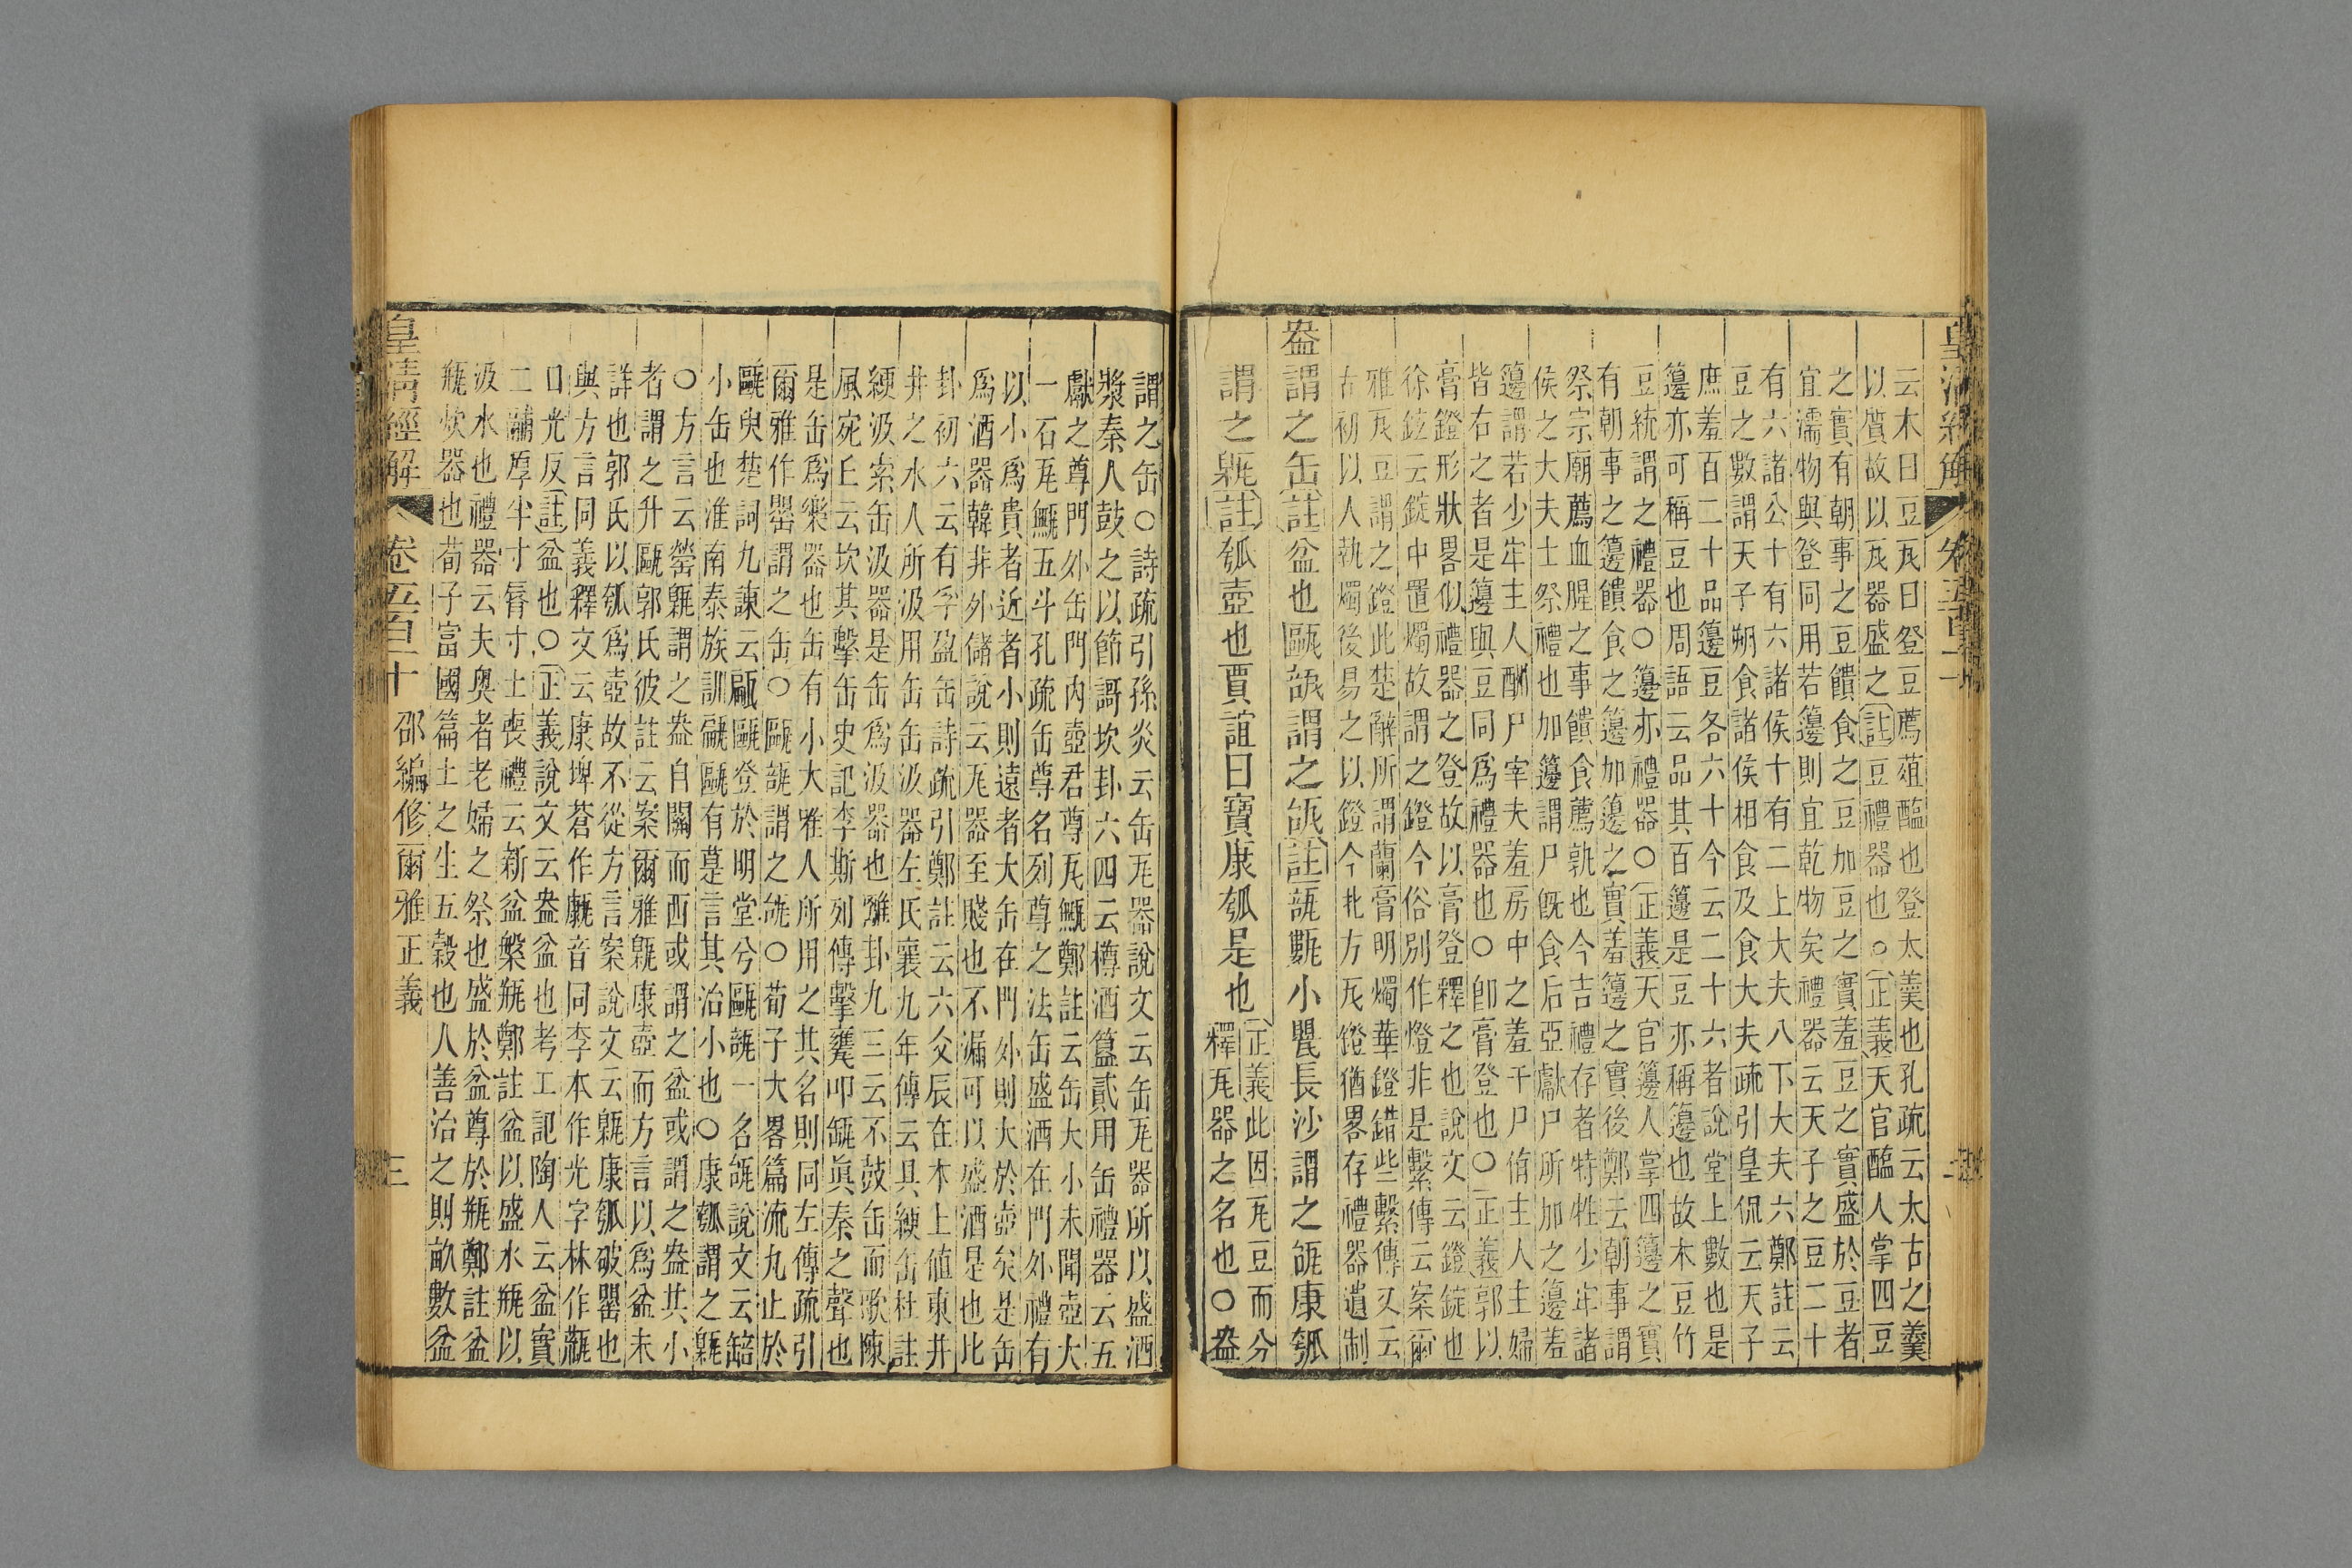 皇清經解 卷五百十
云木曰豆瓦曰登豆薦菹醢也登太羹也孔疏云太古之羹
以質故以瓦器盛之註豆禮器也○正義天官醢人掌四豆
之實有朝事之豆饋食之豆加豆之實羞豆之實盛於豆者
宜濡物與登同用若籩則宜乾物矣禮器云天子之豆二十
有六諸公十有六諸侯十有二上大夫八下大夫六鄭註云
豆之數謂天子朔食諸侯相食及食大夫疏引皇侃云天子
庶羞百二十品籩豆各六十今云二十六者說堂上數也是
籩亦可稱豆也周語云品其百籩是豆亦稱籩也故木豆竹
豆統謂之禮器○籩亦禮器○正義天官籩人掌四籩之實
有朝事之籩饋食之籩加籩之實羞籩之實後鄭云朝事謂
祭宗廟薦血腥之事饋食薦孰也今吉禮存者特牲少牢諸
侯之大夫士祭禮也加籩謂尸旣食后亞獻尸所加之籩羞
籩謂若少牢主人酬尸宰夫羞房中之羞于尸侑主人主婦
皆右之者是籩與豆同爲禮器也○卽膏登也○正義郭以
膏鐙形狀畧似禮器之登故以膏登釋之也說文云鐙錠也
徐鉉云錠中置燭故謂之鐙今俗別作燈非是繫傳云案爾
雅瓦豆謂之鐙此楚辭所謂蘭膏明燭華鐙錯些繫傳又云
古初以人執燭後易之以鐙今北方瓦鐙猶畧存禮器遺制
盎謂之缶註盆也甌瓿謂之瓵註瓿甊小甖長沙謂之瓵康瓠
謂之甈註瓠壺也賈誼曰寶康瓠是也正義此因瓦豆而分
釋瓦器之名也○盎
謂之缶○詩疏引孫炎云缶瓦器說文云缶瓦器所以盛酒
漿秦人鼓之以節謌坎卦六四云樽酒簋貳用缶禮器云五
獻之尊門外缶門內壺君尊瓦甒鄭註云缶大小未聞壺大
一石瓦甒五斗孔疏缶尊名列尊之法缶盛酒在門外禮有
以小爲貴者近者小則遠者大缶在門外則大於壺矣是缶
爲酒器韓非外儲說云瓦器至賤也不漏可以盛酒是也比
卦初六云有孚盈缶詩疏引鄭註云六爻辰在木上値東井
井之水人所汲用缶缶汲器左氏襄九年傳云具綆缶杜註
綆汲索缶汲器是缶爲汲器也離卦九三云不鼓缶而歌陳
風宛丘云坎其擊缶史記李斯列傳擊甕叩缻眞秦之聲也
是缶爲樂器也缶有小大唯人所用之其名則同左傳疏引
爾雅作罌謂之缶○甌瓿謂之瓵○荀子大畧篇流丸止於
甌臾楚詞九諫云甂甌登於明堂兮甌瓿一名瓵說文云㼜
小缶也淮南泰族訓甂甌有萐言其治小也○康瓠謂之甈
○方言云罃甈謂之盎自關而西或謂之盆或謂之盎其小
者謂之升甌郭氏彼註云案爾雅甈康壺而方言以爲盆未
詳也郭氏以瓠爲壺故不從方言案說文云甈康瓠破罌也
與方言同義釋文云康埤蒼作㼹音同李本作光字林作㼹
口光反註盆也○正義說文云盎盆也考工記陶人云盆實
二鬴厚半寸脣寸士喪禮云新盆槃瓶鄭註盆以盛水瓶以
汲水也禮器云夫奥者老婦之祭也盛於盆尊於瓶鄭註盆
瓶炊器也荀子富國篇土之生五穀也人善治之則畝數盆
皇清經解 卷五百十 邵編修爾雅正義 三